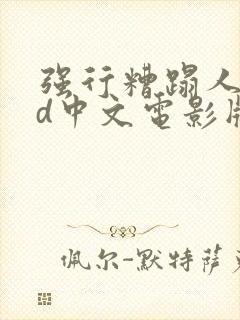 强行糟蹋人
d中文电影
佩尔-默特萨